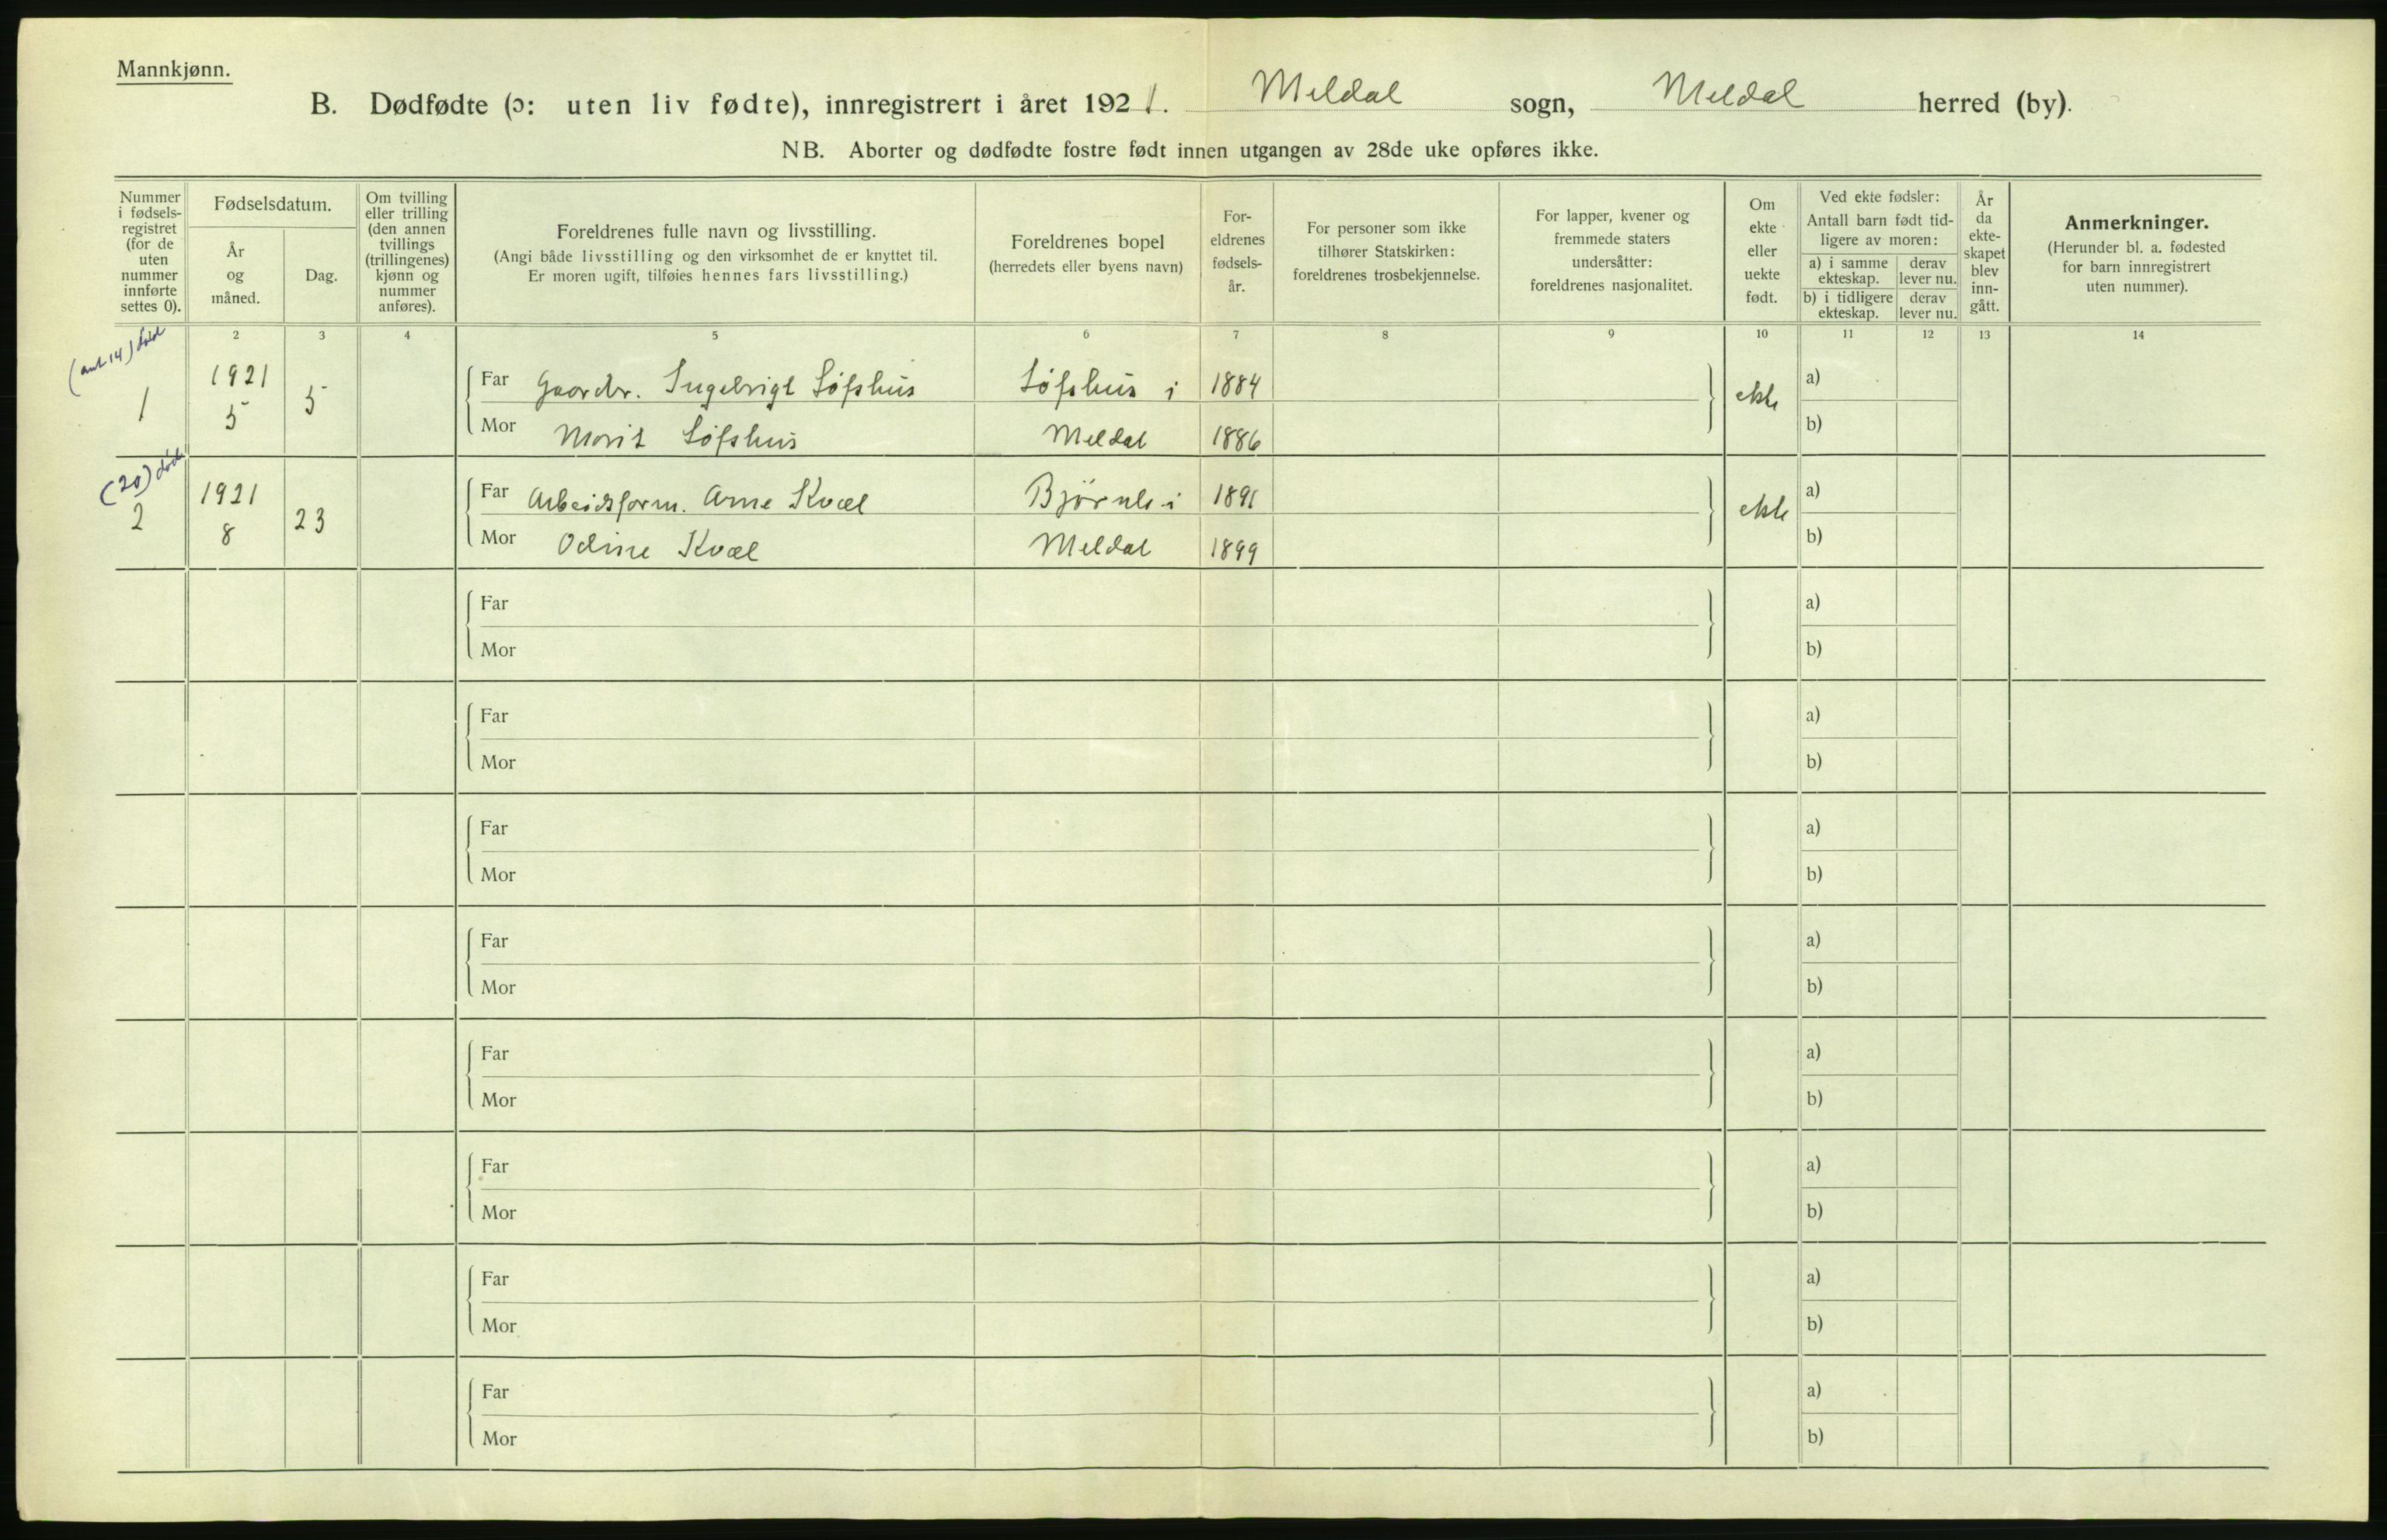 Mannkjønn.
B. Dødfødte (ɔ: uten liv fødte), innregistrert i året 1921. Meldal sogn, Meldal herred (by).
NB. Aborter og dødfødte fostre født innen utgangen av 28de uke opføres ikke.
Nummer i fødsels-registret (for de uten nummer innførte settes 0).
Fødselsdatum.
År og måned.
Dag.
Om tvilling eller trilling (den annen tvillings (trillingenes) kjønn og nummer anføres).
Foreldrenes fulle navn og livsstilling.
(Angi både livsstilling og den virksomhet de er knyttet til.
Er moren ugift, tilføies hennes fars livsstilling.)
Foreldrenes bopel
(herredets eller byens navn)
For-eldrenes fødsels-år.
For personer som ikke tilhører Statskirken: foreldrenes trosbekjennelse.
For lapper, kvener og fremmede staters undersåtter: foreldrenes nasjonalitet.
Om ekte eller uekte født.
Ved ekte fødsler:
Antall barn født tid-ligere av moren:
a) i samme ekteskap.
derav lever nu.
b) i tidligere ekteskap.
derav lever nu.
År da ekte-skapet blev inn-gått.
Anmerkninger.
(Herunder bl. a. fødested for barn innregistrert uten nummer).
2 3 4 5 6 7 8 9 10 11 12 13 14
(ant 14) død
1 1921 5 5
Far Gaardbr. Ingebrigt Løfshus Løfshus i 1884 ekte a)
Mor Marit Løfshus Meldal 1886 b)
(20) død
2 1921 8 23
Far Arbeidsform. Arne Kvæl Bjørnli i 1891 ekte a)
Mor Odine Kvæl Meldal 1899 b)
Far a)
Mor b)
Far a)
Mor b)
Far a)
Mor b)
Far a)
Mor b)
Far a)
Mor b)
Far a)
Mor b)
Far a)
Mor b)
Far a)
Mor b)